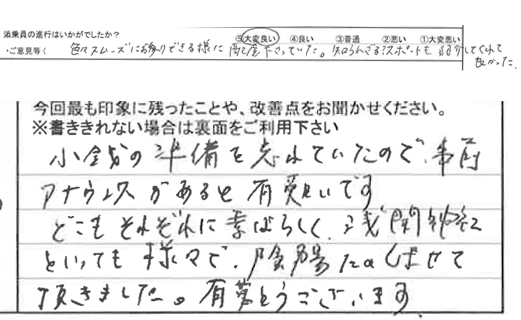 添乗員の進行はいかがでしたか？ ⑤大変良い ④良い ③普通 ②思い ①大変思い
・ご意見等（ 色々スムーズにお参りできる様に配慮下さっていた。知られざるスポットも紹介してくれて
良かった。
今回最も印象に残ったことや、改善点をお聞かせください。
※書ききれない場合は裏面をご利用下さい
小銭の準備を忘れていたので、事前
アナウンスがあると有難いです
どこもそれぞれに素ばらしく、浅間神社
といっても様々で、陰陽たのしませて
頂きました。有難とうございます